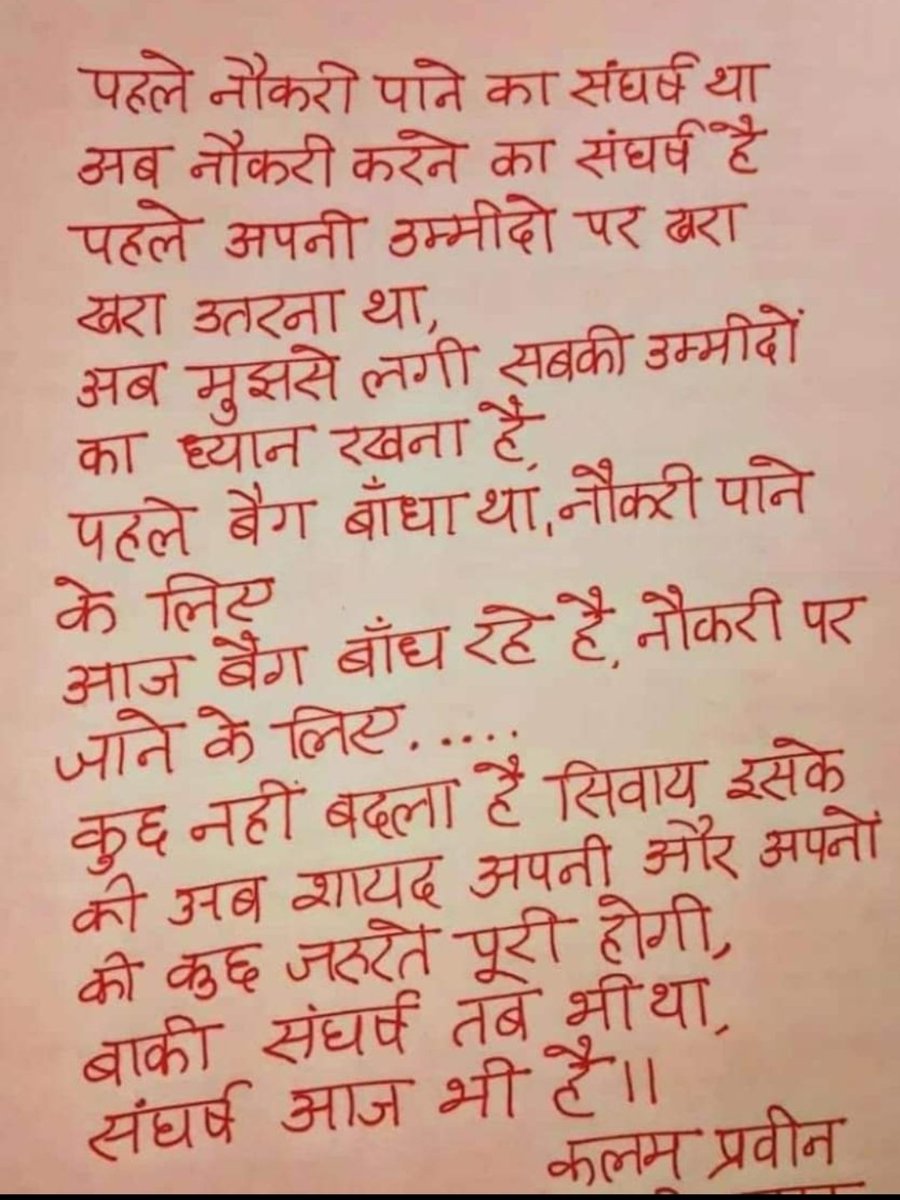 पहले नौकरी पाने का संघर्ष था
अब नौकरी करने का संघर्ष है
पहले अपनी उम्मीदो पर खरा
खरा उतरना था,
अब मुझसे लगी सबकी उम्मीदों
का ध्यान रखना है,
पहले बैग बाँधा था, नौकरी पाने
के लिए
आज बैग बाँध रहे है, नौकरी पर
जाने के लिए.....
कुछ नहीं बदला है सिवाय इसके
की अब शायद अपनी और अपनों
की कुछ जरुरते पूरी होगी,
बाकी संघर्ष तब भी था,
संघर्ष आज भी है॥
कलम प्रवीन